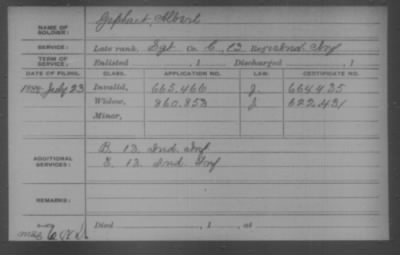 NAME OF SOLDIER: Gephart, Albert
SERVICE: Late rank, Sgt Co. C, 12 Reg't Ind Inf
TERM OF SERVICE: Enlisted , 1 Discharged , 1
DATE OF FILING. CLASS. APPLICATION NO. LAW. CERTIFICATE NO.
1888 July 23 Invalid, 665.466 J. 664435
Widow, 860.853 J. 622.431
Minor,
ADDITIONAL SERVICES: B. 12 Ind Inf
E. 12 Ind Inf
REMARKS:
Died , 1 , at